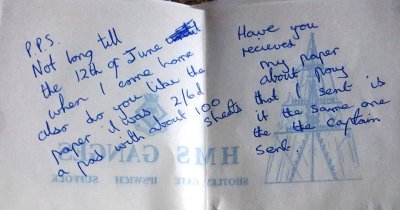 P.P.S.
Not long till
the 12th of June
when I come home
also do you like the
paper it was 2/6d
a pad with about 100
sheets
Have you
recieved
my paper
about Pony
that I sent is
it the same one
the the captain
sent.
HMS GANGES
SHOTLEY GATE IPSWICH SUFFOLK